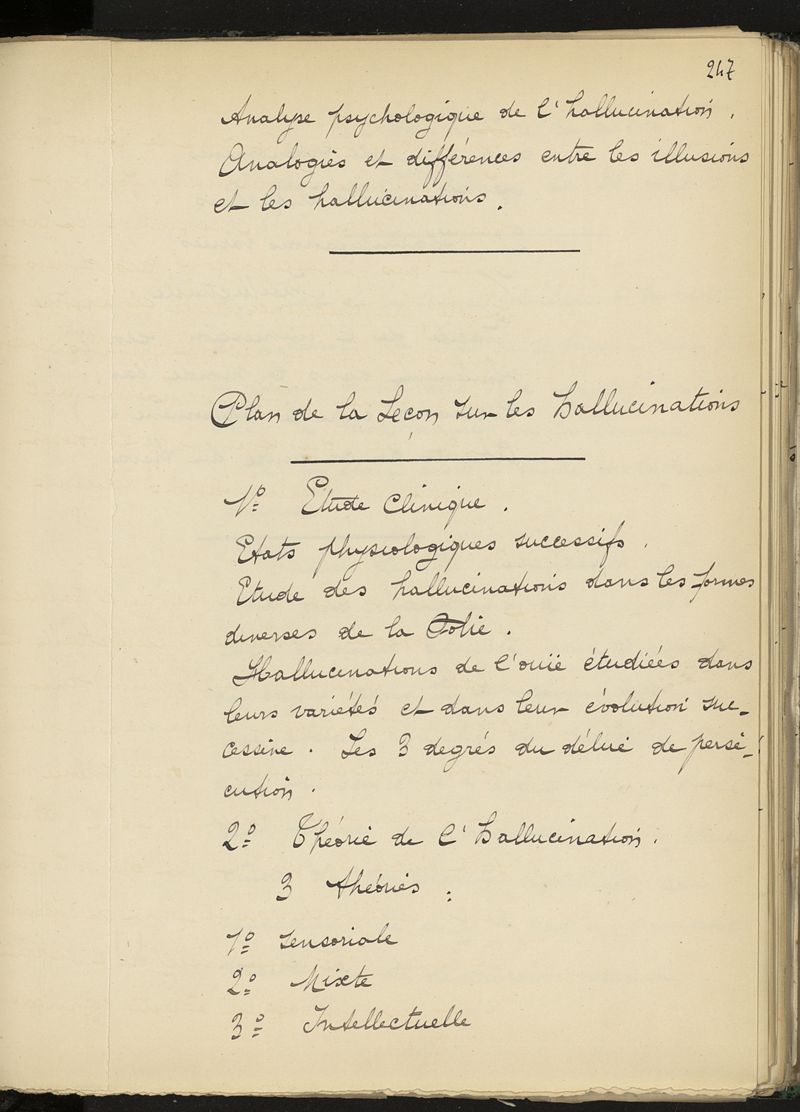 247
Analyse psychologique de l'hallucination.
Analogies et différences entre les illusions
et les hallucinations.
Plan de la Leçon sur les hallucinations
1º Etude Clinique.
Etats physiologiques successifs.
Etude des hallucinations dans les formes
diverses de la Folie.
Hallucinations de l'ouïe étudiées dans
leurs variétés et dans leur évolution suc-
cessive. Les 3 degrés du délire de persé-
cution.
2º Théorie de l'Hallucination.
3 théories :
1º sensoriale
2º Mixte
3º Intellectuelle